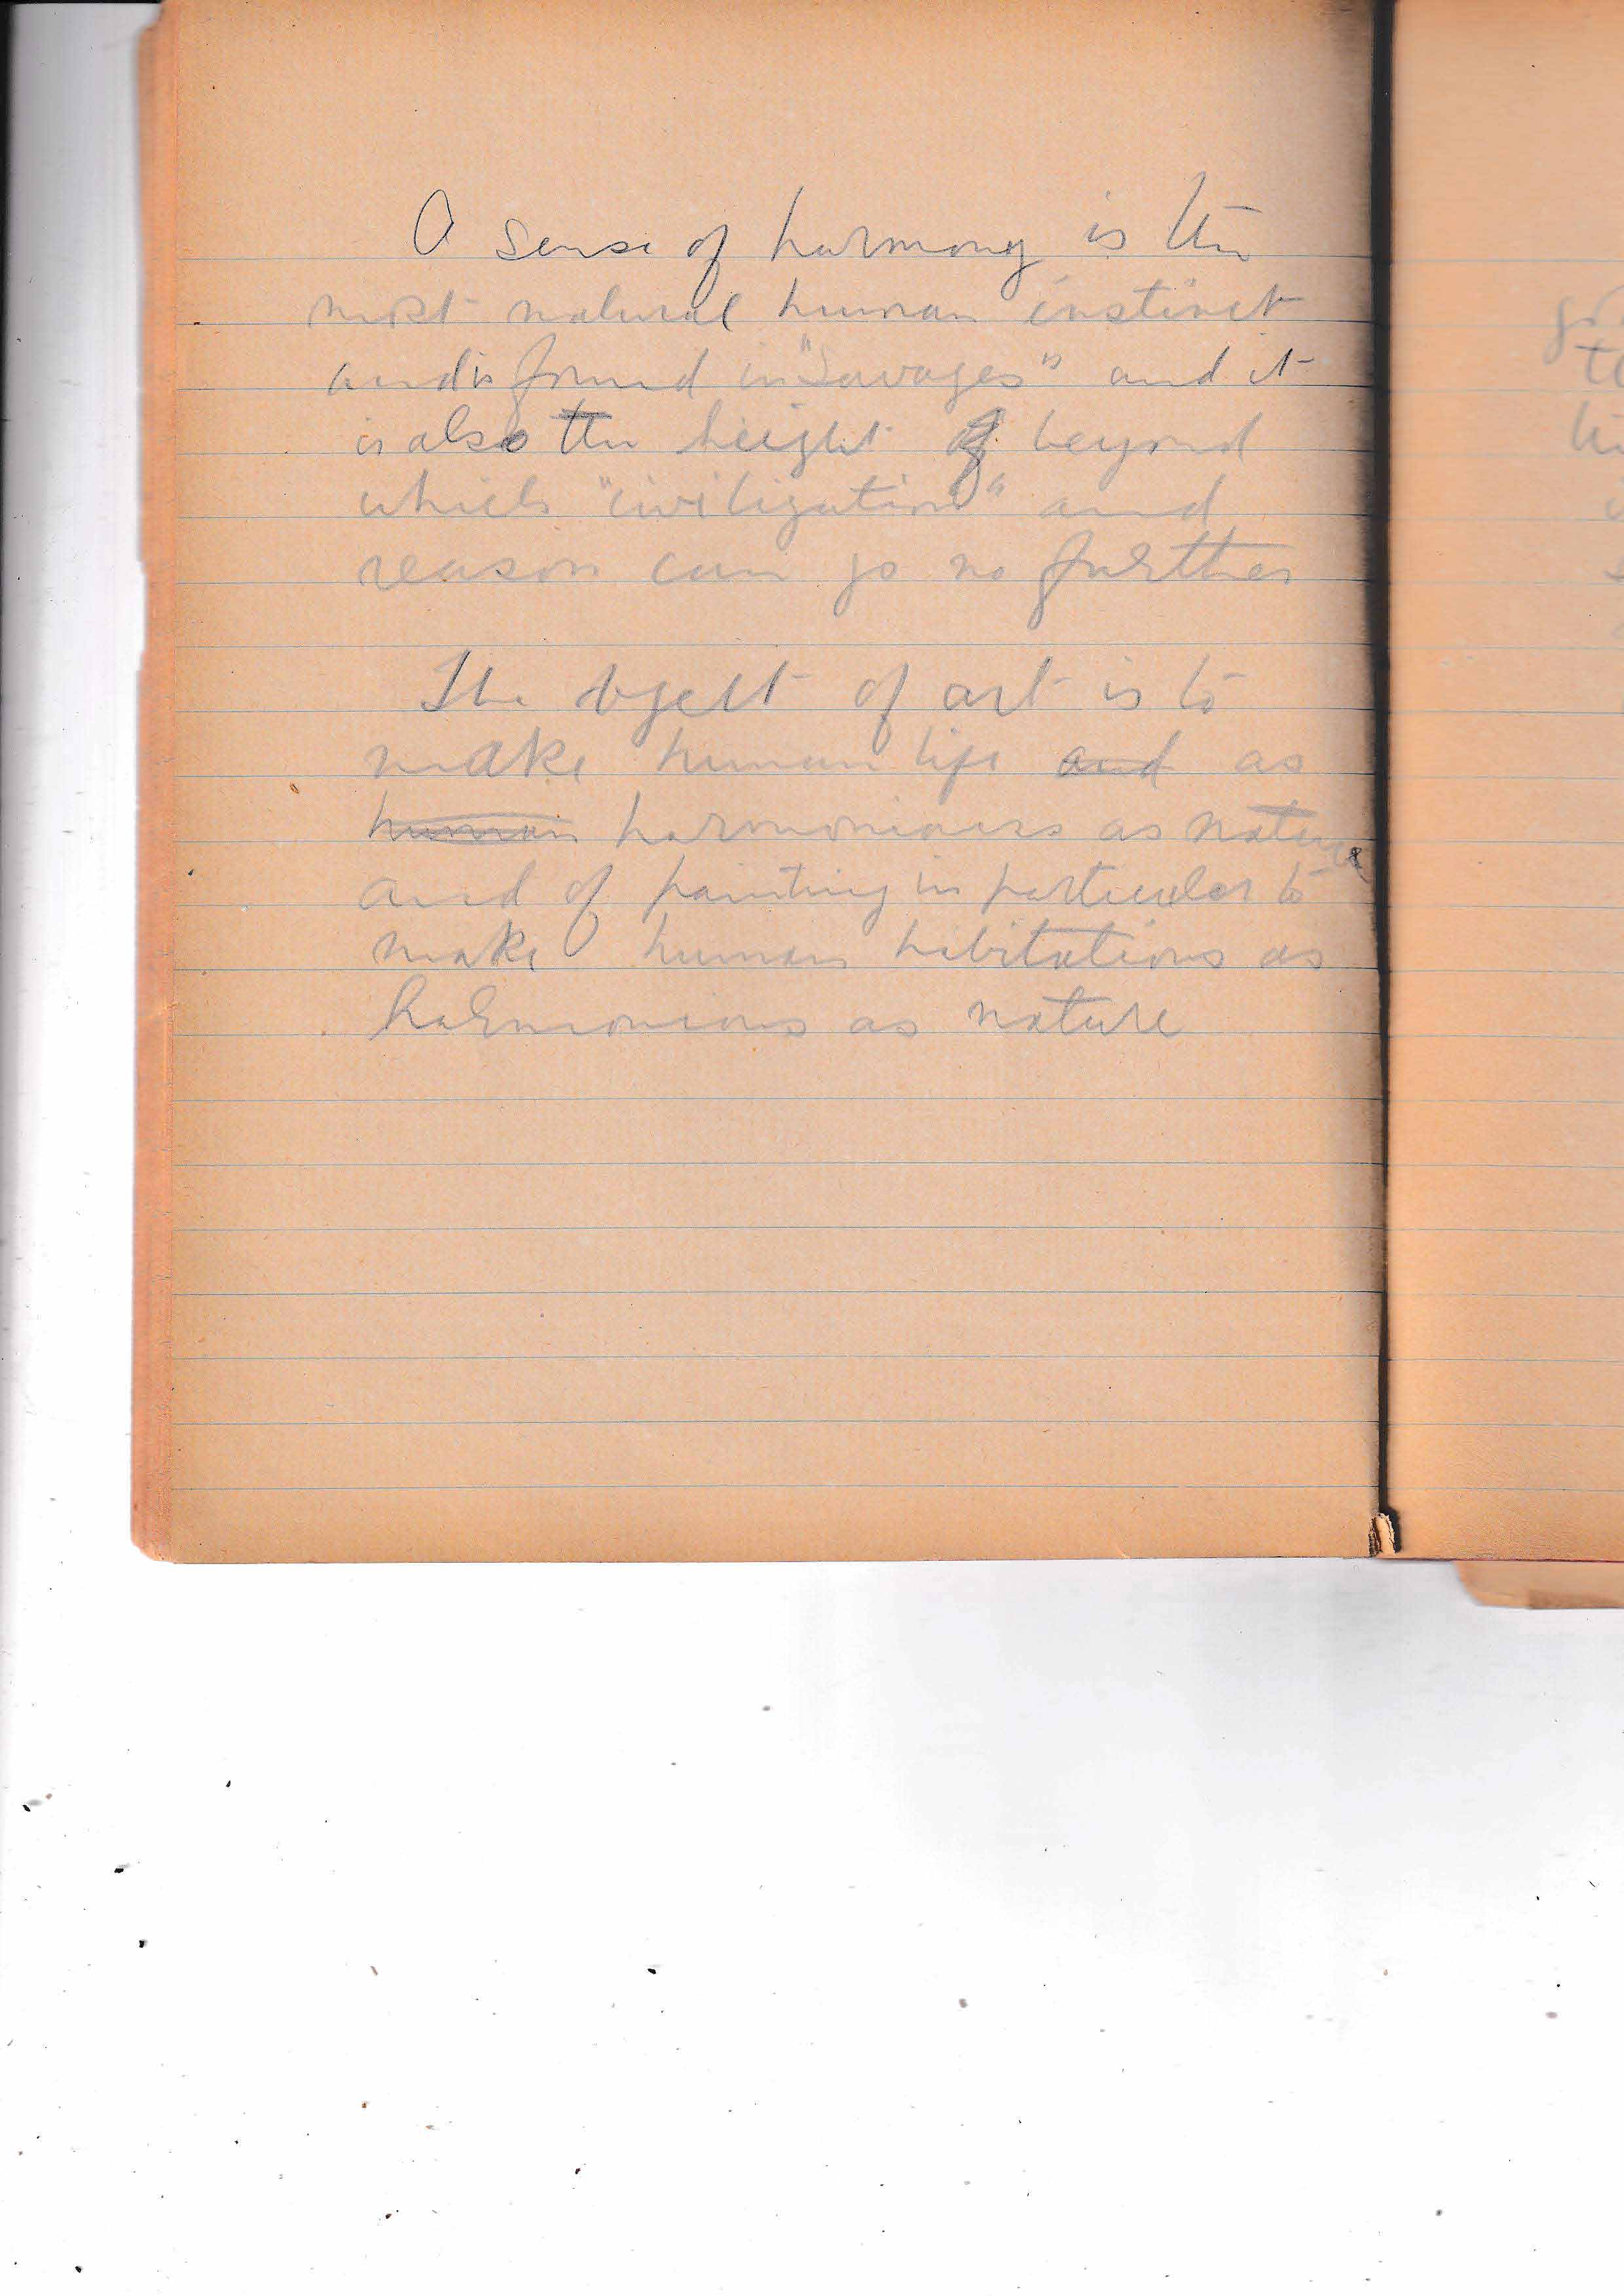 A sense of harmony is the
most natural human instinct
and is found in "Savages" and it
is also the height of beyond
which "civilization" and
reason can go no further
The object of art is to
make human life and as
human harmonious as nature
and of painting in particular to
make human habitations as
harmonious as nature